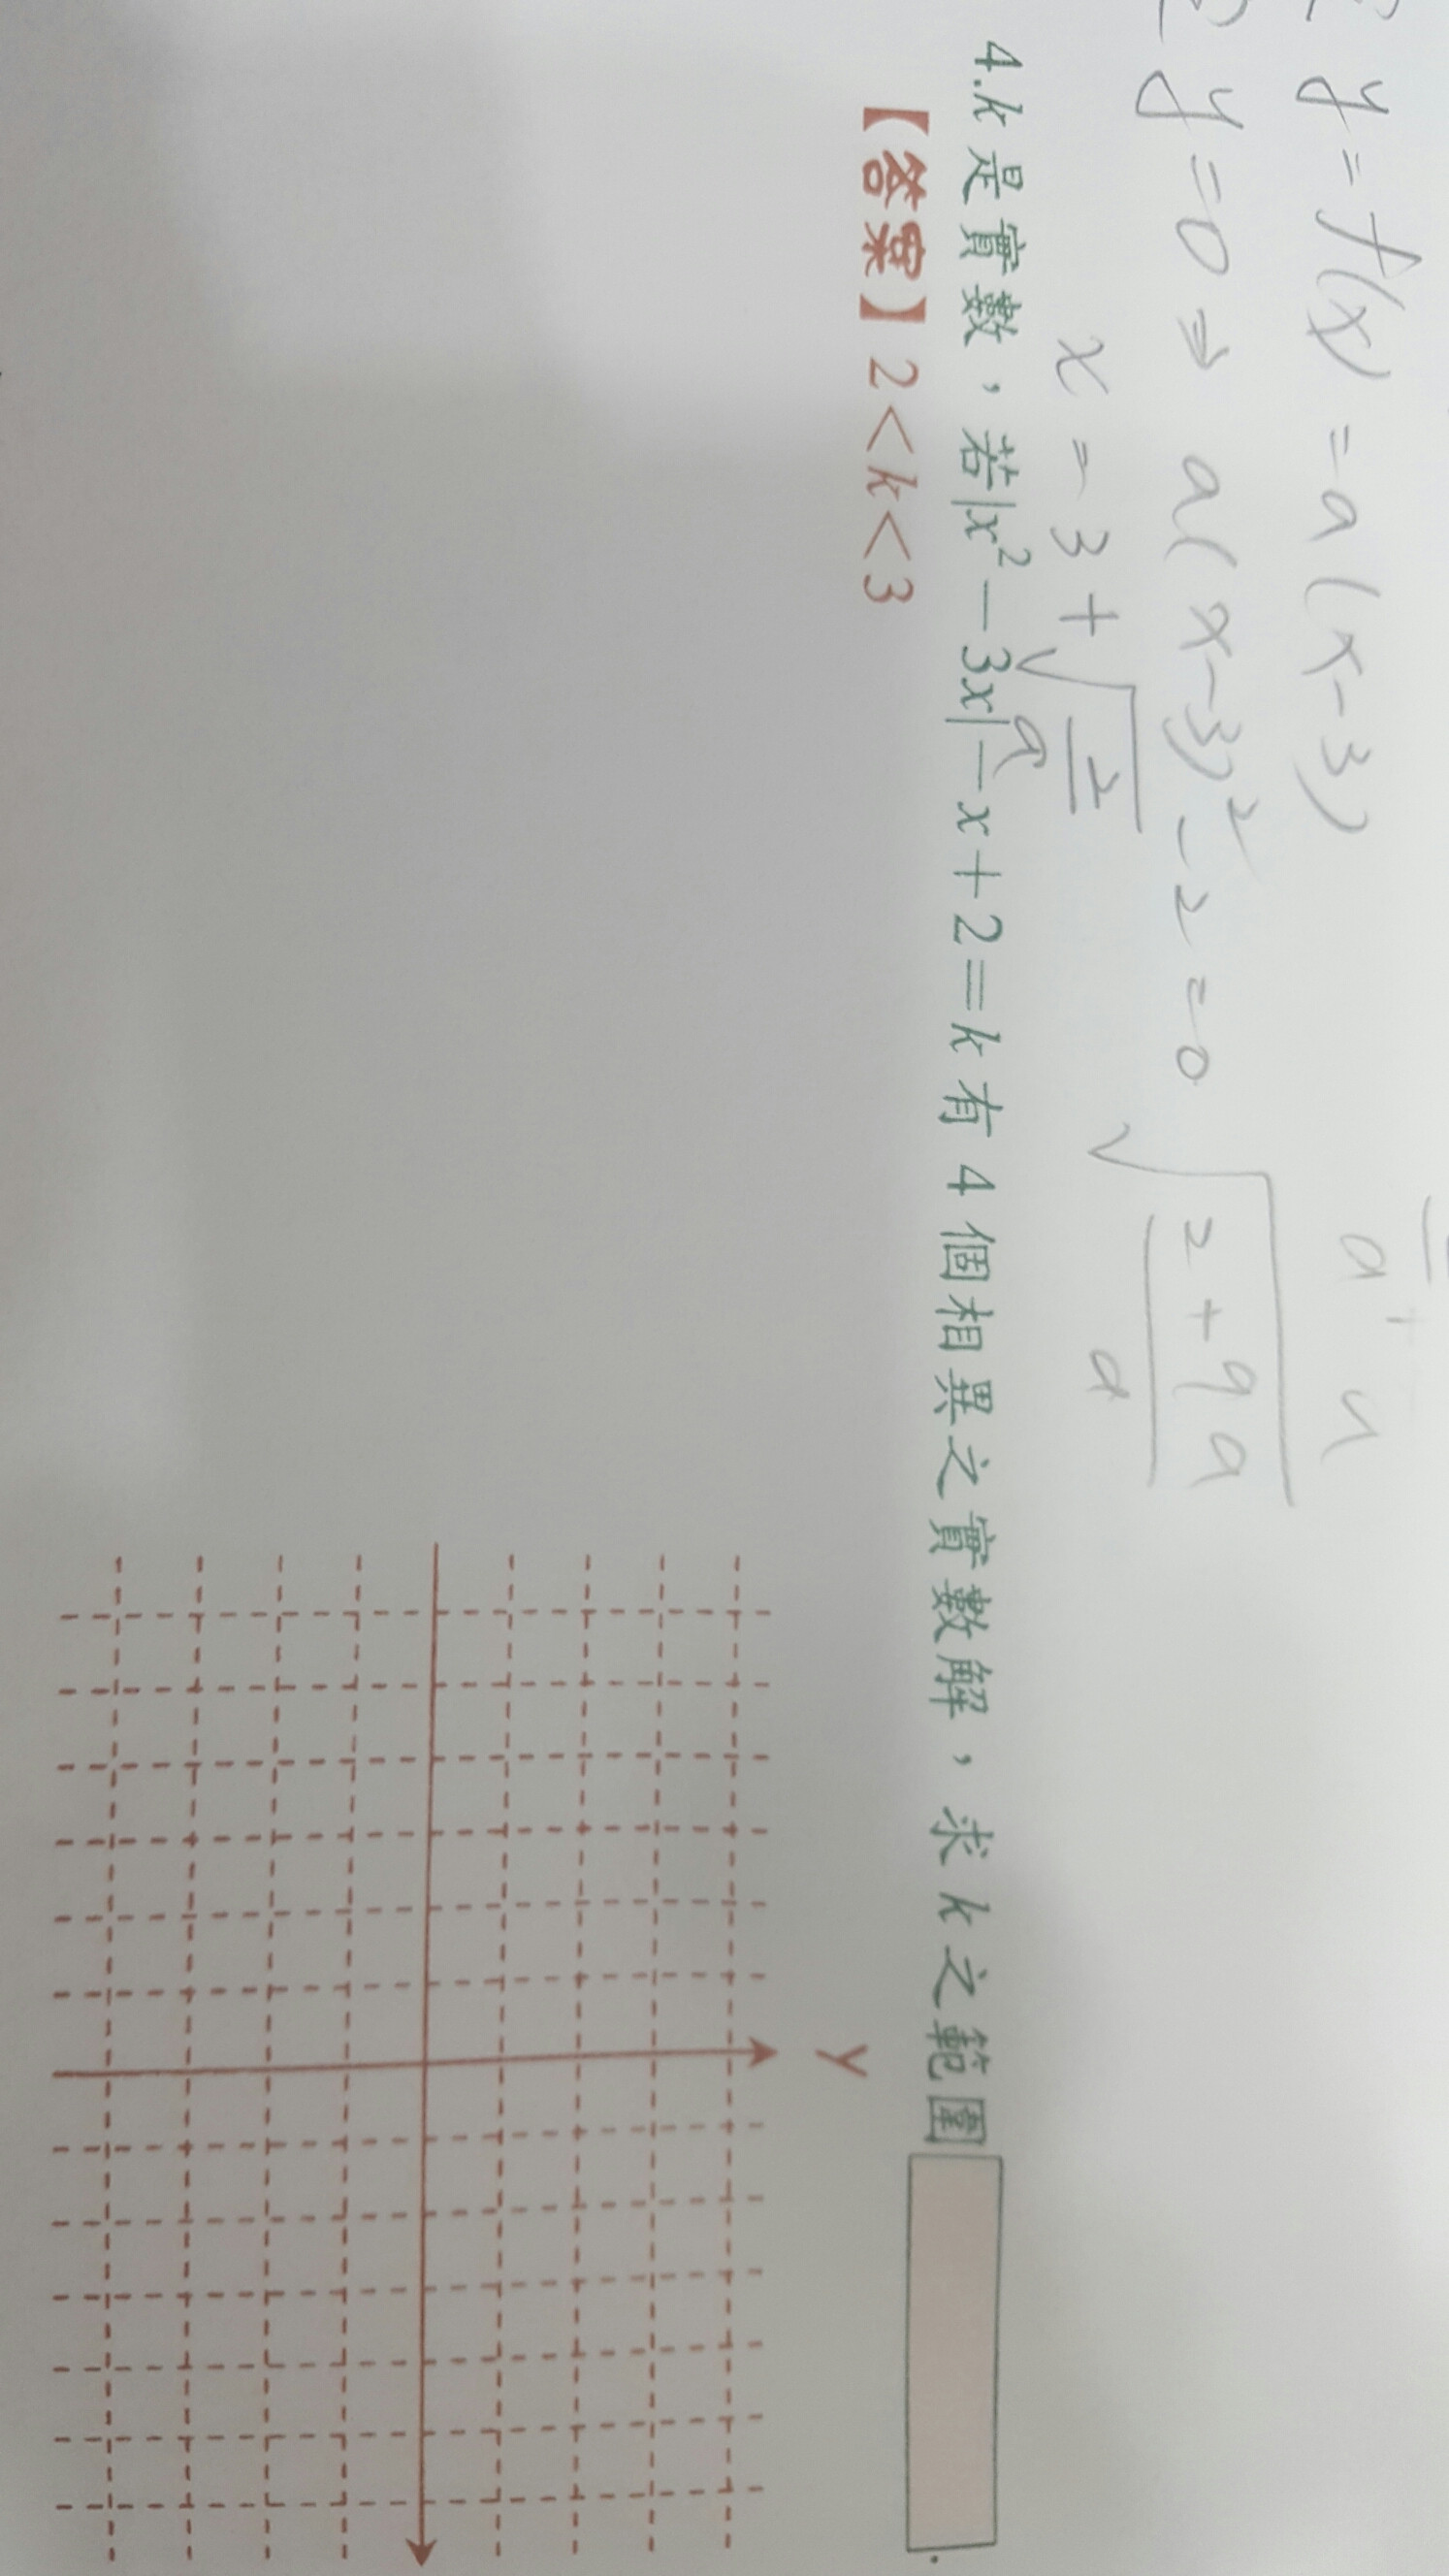 y = f(x) = a(x-3)
y = 0 ⇒ a(x-3)² - 2 = 0
x = 3 + √(2/a)
√((2+9a)/a)
4.k是實數，若|x²－3x|－x＋2＝k有4個相異之實數解，求k之範圍
【答案】2＜k＜3
y